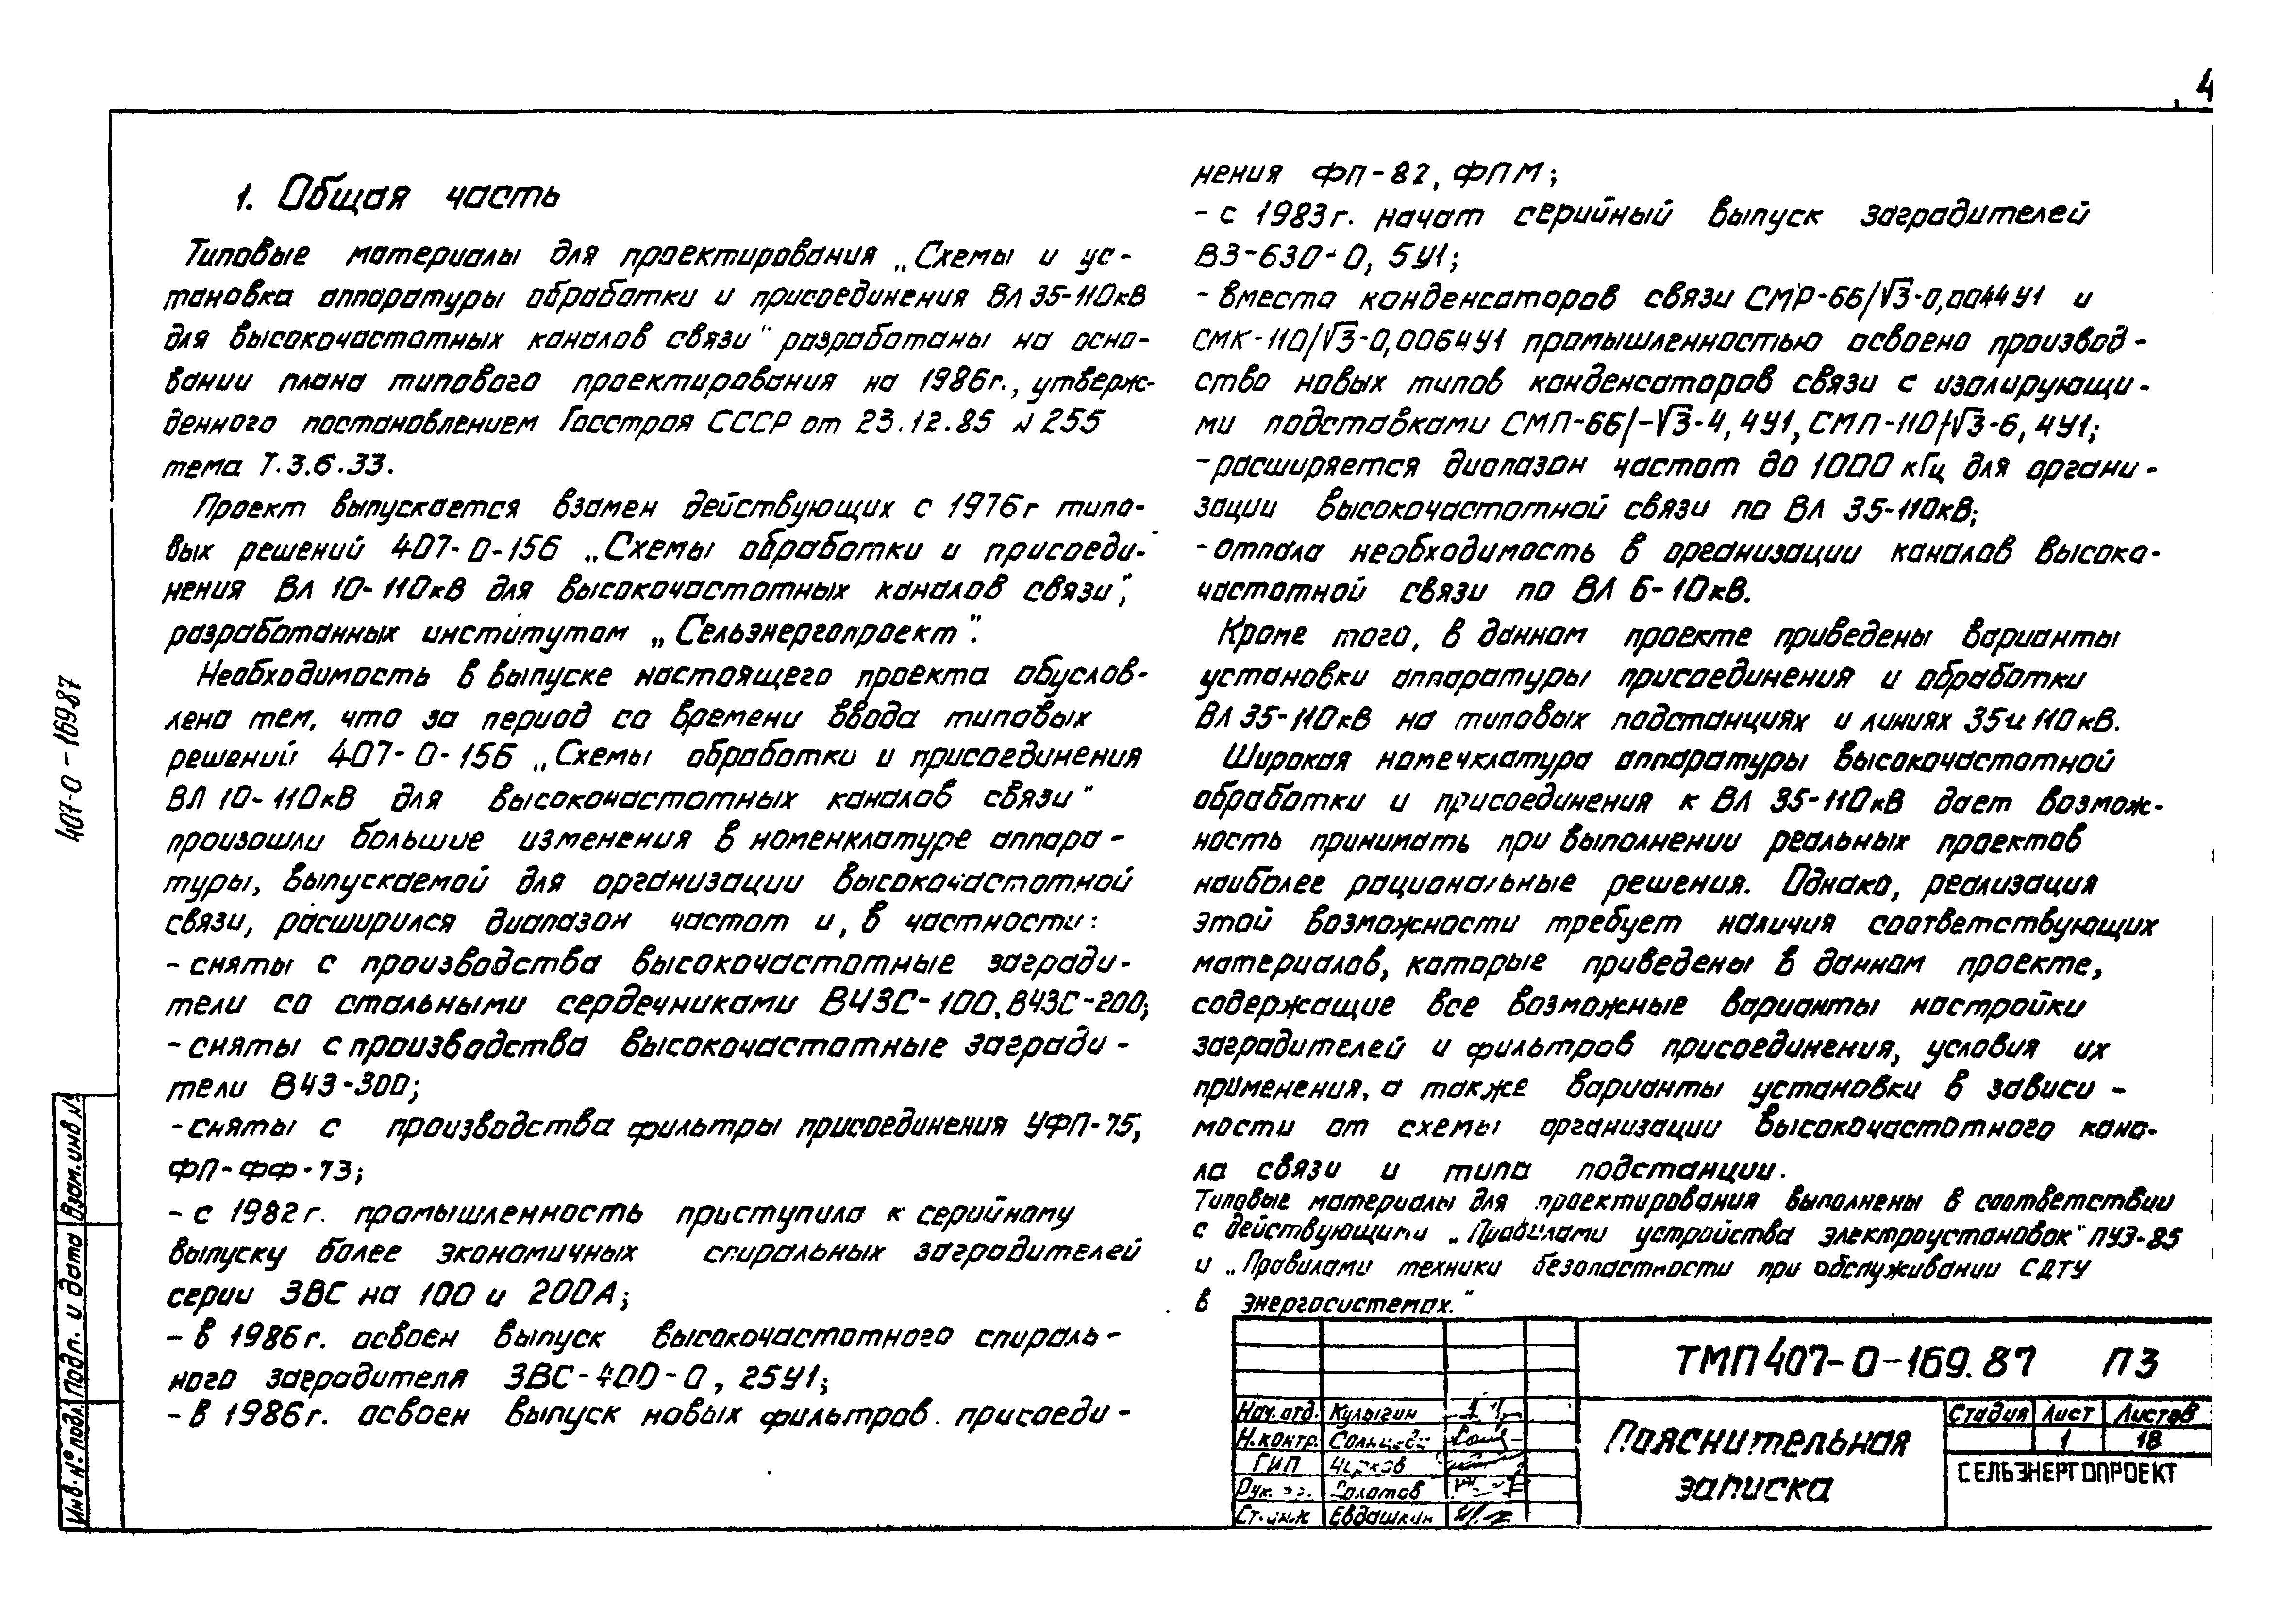 4
1. Общая часть
Типовые материалы для проектирования „Схемы и ус-
тановка аппаратуры обработки и присоединения ВЛ 35-110кВ
для высокочастотных каналов связи" разработаны на осно-
вании плана типового проектирования на 1986г., утверж-
денного постановлением Госстроя СССР от 23.12.85 № 255
тема Т.3.6.33.
Проект выпускается взамен действующих с 1976г типо-
вых решений 407-0-156 „Схемы обработки и присоеди-
нения ВЛ 10-110кВ для высокочастотных каналов связи",
разработанных институтом „Сельэнергопроект".
Необходимость в выпуске настоящего проекта обуслов-
лена тем, что за период со времени ввода типовых
решений 407-0-156 „Схемы обработки и присоединения
ВЛ 10-110кВ для высокочастотных каналов связи"
произошли большие изменения в номенклатуре аппара-
туры, выпускаемой для организации высокочастотной
связи, расширился диапазон частот и, в частности:
- сняты с производства высокочастотные загради-
тели со стальными сердечниками ВЧЗС-100, ВЧЗС-200;
- сняты с производства высокочастотные загради-
тели ВЧЗ-300;
- сняты с производства фильтры присоединения УФП-75,
ФП-ФФ-73;
- с 1982г. промышленность приступила к серийному
выпуску более экономичных спиральных заградителей
серии ЗВС на 100 и 200А;
- в 1986г. освоен выпуск высокочастотного спираль-
ного заградителя ЗВС-400-0, 25У1;
- в 1986г. освоен выпуск новых фильтров присоеди-
нения ФП-82, ФПМ;
- с 1983г. начат серийный выпуск заградителей
ВЗ-630-0, 5У1;
- вместо конденсаторов связи СМР-66/√3-0,0044У1 и
СМК-110/√3-0,0064У1 промышленностью освоено производ-
ство новых типов конденсаторов связи с изолирующи-
ми подставками СМП-66/-√3-4,4У1, СМП-110/√3-6,4У1;
- расширяется диапазон частот до 1000 кГц для органи-
зации высокочастотной связи по ВЛ 35-110кВ;
- отпала необходимость в организации каналов высоко-
частотной связи по ВЛ 6-10кВ.
Кроме того, в данном проекте приведены варианты
установки аппаратуры присоединения и обработки
ВЛ 35-110кВ на типовых подстанциях и линиях 35 и 110кВ.
Широкая номечклатура аппаратуры высокочастотной
обработки и присоединения к ВЛ 35-110кВ дает возмож-
ность принимать при выполнении реальных проектов
наиболее рациональные решения. Однако, реализация
этой возможности требует наличия соответствующих
материалов, которые приведены в данном проекте,
содержащие все возможные варианты настройки
заградителей и фильтров присоединения, условия их
применения, а также варианты установки в зависи-
мости от схемы организации высокочастотного кана-
ла связи и типа подстанции.
Типовые материалы для проектирования выполнены в соответствии
с действующими „Правилами устройства электроустановок" ПУЭ-85
и „Правилами техники безопастности при обслуживании СДТУ
в энергосистемах."
407-0-169.87
Взам.инв.№
Подп. и дата
Инв.№ подл.
ТМП 407-0-169.87 ПЗ
Нач.отд. Кулыгин
Н.контр.
ГИП Чирков
Рук. гр. Солатов
Ст.инж Евдашкин
Пояснительная
записка
Стадия Лист Листов
1 18
СЕЛЬЭНЕРГОПРОЕКТ